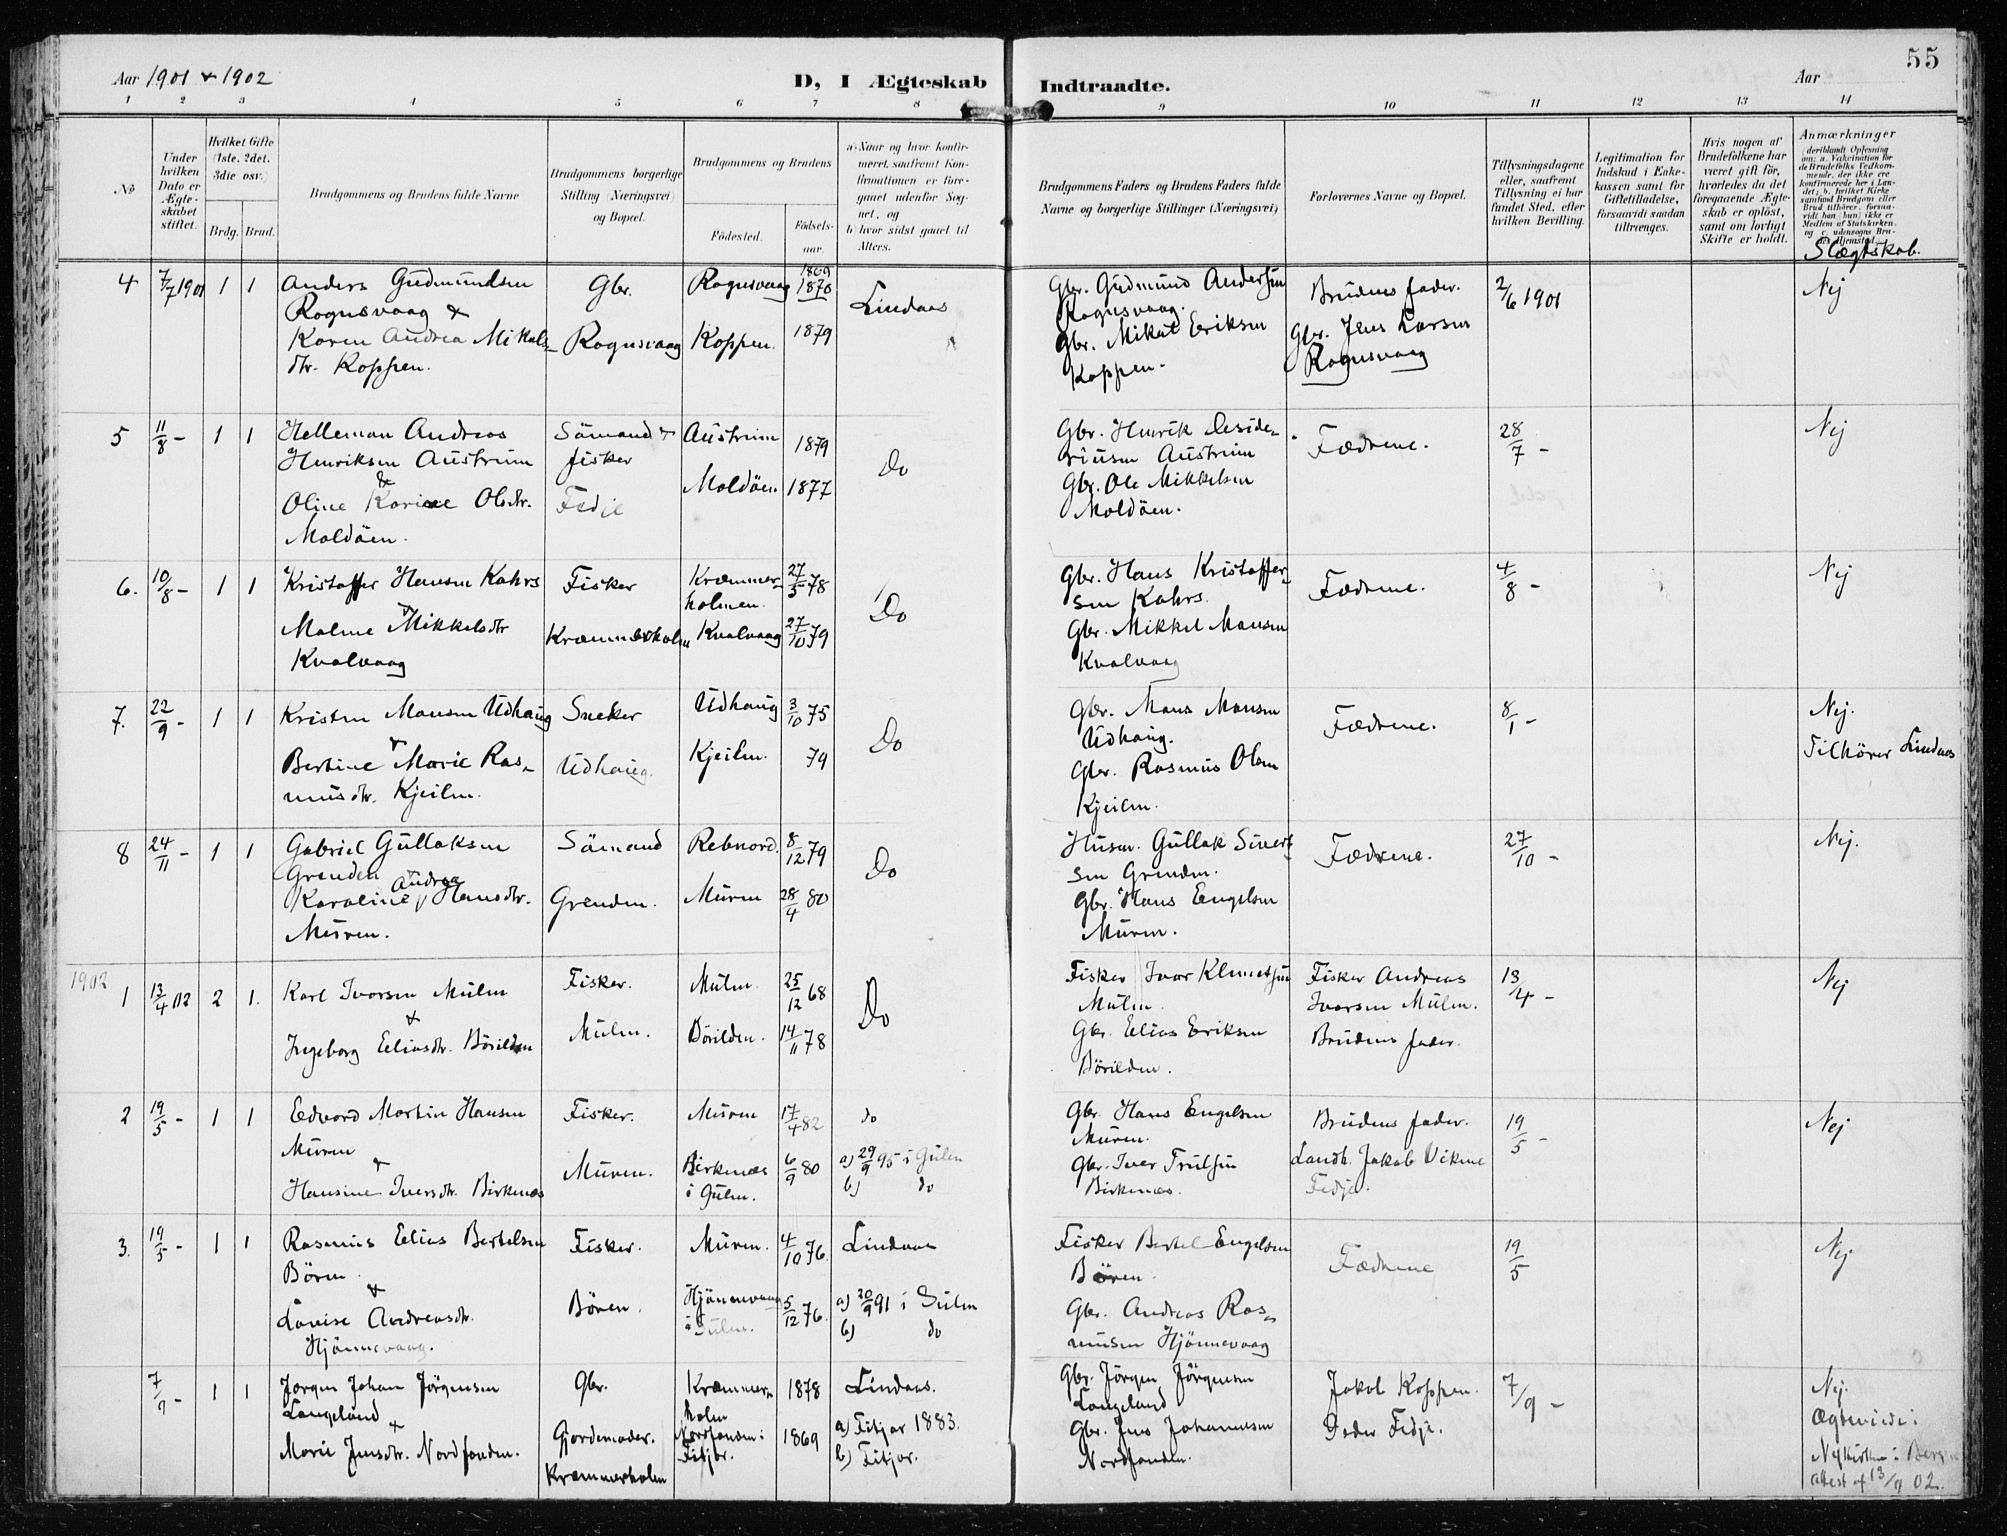 55
Aar 1901 & 1902
D, I Ægteskab Indtraadte.
Aar
1 2 3 4 5 6 7 8 9 10 11 12 13 14
No
Under hvilken Dato er Ægteskabet stiftet.
Hvilket Gifte (1ste. 2det. 3die osv.
Brdg. Brud.
Brudgommens og Brudens fulde Navne
Brudgommens borgerlige Stilling (Næringsvei) og Bopæl.
Brudgommens og Brudens
Fødested.
Fødsels-aar.
a) Naar og hvor konfirmeret, saafremt Konfirmationen er foregaaet udenfor Sognet, og
b) hvor sidst gaaet til Alters.
Brudgommens Faders og Brudens Faders fulde Navne og borgerlige Stillinger (Næringsvei)
Forlovernes Navne og Bopæl.
Tillysningsdagene eller, saafremt Tillysning ei har fundet Sted, efter hvilken Bevilling.
Legitimation for Indskud i Enkekassen samt for Giftetilladelse, forsaavidt saadan tiltrænges.
Hvis nogen af Brudefolkene har været gift før, hvorledes da det foregaaende Ægteskab er opløst, samt om lovligt Skifte er holdt.
Anmærkninger
(deriblandt Oplysning om: a. Vakcination for de Brudefolks Vedkommende, der ikke ere konfirmerede her i Landet; b. hvilket Kirkesamfund Brudgom eller Brud tilhører, forsaavidt han (hun) ikke er Medlem af Statskirken, og c. udensogns Brudes Hjemsted.
Slægtskab.
4 7/7 1901 1 1 Anders Gudmundsen Gbr. Rognsvaag 1869 1870 Lindaas Gbr. Gudmund Andersen Brudens fader. 2/6 1901 Nej
Rognsvaag & Rognsvaag.
Karen Andrea Mikals- Rognsvaag Koppen. 1879 Gbr. Mikal Eriksen Gbr. Jens Larsen
dtr. Koppen. Koppen. Rognsvaag
5 11/8 - 1 1 Helleman Andreas Sömand & Austrum 1879 Do Gbr. Henrik Deside- Fædrene. 28/7 - Nej
Henriksen Austrum fisker riusen Austrum
& Moldöen 1877 Gbr. Ole Mikkelsen
Oline Karine Olsdtr. Fedje Moldöen.
Moldöen.
6. 10/8 - 1 1 Kristoffer Hansen Kahrs Fisker Kræmmer- 27/5 78 Do Gbr. Hans Kristoffer- Fædrene. 4/8 - Nej
& holmen. sen Kahrs.
Malene Mikkelsdtr Kræmmerholm Kvalvaag 27/10 79 Gbr. Mikkel Monsen
Kvalvaag Kvalvaag
7. 22/9 - 1 1 Kristen Monsen Udhaug Sneker Udhaug 3/10 75 Do Gbr. Mons Monsen Fædrene. 8/1 - Nej.
& Udhaug. Tilhører Lindaas
Bertine Marie Ras- Udhaug. Kjeilen. 79 Gbr. Rasmus Olsen
musdtr. Kjeilen. Kjeilen.
8 24/11 - 1 1 Gabriel Gullaksen Sömand Rebnord. 8/12 79 Do Husm. Gullak Sivert- Fædrene. 27/10 - Nej.
Grenden & sen Grenden.
Karoline Andrea Hansdtr. Grenden. Muren 28/4 80 Gbr. Hans Engelsen
Muren. Muren.
1902
1 13/4 02 2 1. Karl Ivarsen Mulen Fisker. Mulen. 25/12 68 Do Fisker Ivar Klemetsen Fisker Andreas 13/4 - Nej
& Mulen. Ivarsen Mulen.
Ingeborg Eliasdtr. Börilden Mulen. Börilden. 14/11 78 Gbr. Elias Eriksen Brudens fader.
Börilden.
2 19/5 - 1 1 Edvard Martin Hansen Fisker. Muren 17/4 82 do Gbr. Hans Engelsen Brudens fader. 19/5 - Nej
Muren Muren.
& Muren. Birkenæs 6/9 80 a) 29/9 95 i Gulen Gbr. Iver Trulsen Landh. Jakob Vikene
Hansine Iversdtr. Birkenæs i Gulen. b) do Birkenæs. Fedje.
3. 19/5 - 1 1 Rasmus Elias Bertelsen Fisker. Muren. 4/10 76. Lindaas Fisker Bertel Engelsen Fædrene 19/5 Nej
Bören Bören.
& Bören. Hjönnevaag 5/12 76. a) 20/9 91 i Gulen Gbr. Andreas Ras-
Lovise Andreasdtr. i Gulen. b) do musen Hjönnevaag
Hjönnevaag.
7/9 - 1 1 Jørgen Johan Jörgensen Gbr. Kræmmer- 1878 Lindaas. Gbr. Jörgen Jörgensen Jakob Koppen. 7/9 - Nej.
Langeland holm Langeland Ægteviede i
& Gjordemoder. Nordfonden i 1869 a) Fitjar 1883. Gbr. Jens Johannesen Peder Fedje. Nykirken i Bergen
Marie Jensdtr. Nordfonden. Kræmmerholm Fitjar. b) Fitjar. Nordfonden. attest af 13/9 02.